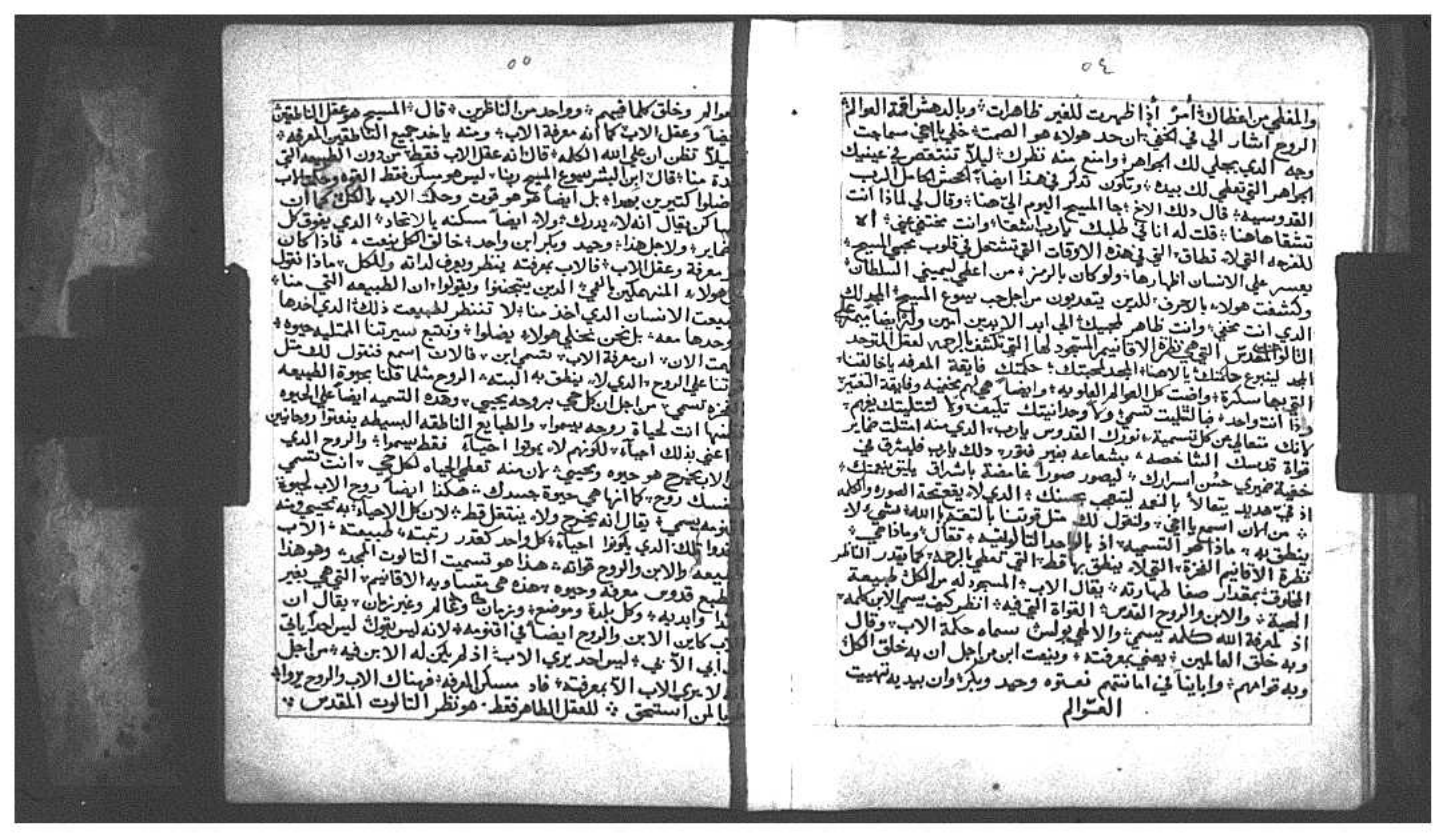 ٥٤
والمغلي من اعطاك أمرُ أذا ظهرت للغير ظاهرات وبالدهش اقمة العوالم
الروح اشار الي في الخفي ان حد هولاء هو الصمت خلي يااخي سماجت
وجه الذي يجلي لك الجواهر وامنع منه نظرك ليلاّ تنتقص في عينيك
الجواهر التي تعطي لك بيده وتكون تذكر في هذا ايضاً الجحش الحامل الرب
القدوسيه قال دلك الاخ جا المسيح اليوم الي هنا وقال لي لماذا انت
تشقا هاهنا قلت له انا في طلبك يارب اشقا وانت مختفي عني الا
للفرجه التي لا تطاق التي في هذه الاوقات التي تشتعل في قلوب محبي المسيح
يعسر علي الانسان اظهارها ولو كان بالرمز من اعطي ليميني السلطان
وكشفت هولاء بالاحرف للذين يتعذبون من اجل حب يسوع المسيح المجد لك
الذي انت مخفي وانت ظاهر لمحبيك الي ابد الابدين امين وله ايضاً ميمر علي
التالوت المقدس التي هي نظرة الاقانيم المسجود لها التي تكشف بالرحمه لعقل المتوحد
المجد لينبوع حكمتك يا الاهنا المجد لمحبتك حكمتك فايقة المعرفه ياخالقنا
التي بها سكرة واضت كل العوالم العلويه وايضاً هي لم بخمينه وفايقة التغيير
اذا أنت واحد فبالتليت تسمي ولا وحدانيتك تكيف ولا لتتليتك يفهم
لانك متعالي عن كل تسمية نورك القدوس يارب الذي منه امتلت ضماير
قواة قدسك الشاخصه بشعاعه بغير فتور ذلك يارب فليشرق في
خفية ضميري حسن اسرارك ليصور صوراً غامضة باشراق يليق بنعمتك
اذ في هذيذ يتعالاً بالنعمه لتعجب بحسنك الذي لا يقع تحت الصوره والكلمه
من الان اسمع يااخي ولنقول لك مثل قوتنا بالنعمه لاالله شي لا
ينطق به ماذا هو التسميه اذ بالواحد التالوتيه تقال وماذا هي
نظرة الاقانيم الفزة التي لا ينطق بها قط التي تعطي بالرحمه كما يقدر الناظر
المخلوق بمقدار صفا طهارته يقال الاب المسجود له من الكل طبيعة
المحبة والابن والروح القدس القواة التي فيه انظر كيف يسمي الابن كلمه
اذ لمعرفة الله كلمه يسمي والالاهي بولس سماه حكمة الاب وقال
وبه خلق العالمين يعني بمعرفته وينعت ابن من اجل ان به خلق الكل
وبه قوامهم واباينا في امانتهم نعتوه وحيد وبكر وان بيديه تهييت
العوالم
٥٥
العوالم وخلق كلما فيهم وواحد من الناظرين قال المسيح هو عقل الناطقين
ايضاً وعقل الاب كما أنه معرفة الاب ومنه ياخد جميع الناطقين المعرفه
ليلاّ تظن ان علي الله الكلمه قال انه عقل الاب فقط من دون الطبيعه التي
منا قال ابن البشر يسوع المسيح ربنا ليس هو مسكن فقط القوه وحكمة الاب
ضلوا كتيرين بهدا بل ايضاً هو هو قوت وحكمة الاب بالكل كما أن
يقال انه لا يدرك ولا ايضاً مسكنه بالاتحاد الذي يفوق كل
الضماير ولاجل هذا وحيد وبكر ابن واحد خالق الكل ينعت فاذا كان
هو معرفة وعقل الاب فالاب بمعرفته ينظر ويعرف لداته وللكل ماذا نقول
هولاء المنهمكين بالغي الذين يتجننوا ويقولوا ان الطبيعه التي منا
طبيعت الانسان الذي اخذ منا لا تننظر لطبيعت ذلك الذي اخدها
ووحدها معه بل نحن نخلي هولاء يضلوا ونتبع سيرتنا الممتليه حيوه
الان ان معرفة الاب تسمي ابن فالان اسمع فنقول لك مثل
علي الروح الذي لا ينطق به البته الروح مثلما قلنا بحيوة الطبيعه
الفزة تسمي من اجل ان كل حي بروحه يحيي وهذه التسميه ايضاً علي الحيوه
انت لحياة روحه يسموا والطبايع الناطقه البسيطه ينعتوا روحانيين
اعني بذلك أحياء لكونهم لا يموتوا احياء فقط يسموا والروح الذي
من الاب يخرج هو حيوه ويحيي لان منه تعطي الحياه لكل حي انت تسمي
نفسك روح كما انها هي حيوة جسدك هكذا ايضاً روح الاب لحيوة
اقنومه يسمي يقال انه يخرج ولا ينتقل قط لان كل الاحياء به تحيي ومنه
ذلك الذي يكونوا احياء كل واحد كقدر رتبته طبيعته الاب
طبيعه والابن والروح قواته هذا هو تسميت التالوت المجد وهو هذا
طبع قدوس معرفه وحيوه هذه هي متساويه الاقانيم التي هي بغير
وابديه وكل بلدة وموضع وزمان وعالم وغير زمان يقال ان
الاب كاين الابن والروح ايضاً في اقنومه لانه ليس يقول ليس احد ياتي
الي ابي الاّ بي ليس احد يري الاب اذ لم يكن له الابن فيه من اجل
انه لا يري الاب الاّ بمعرفته فاد مسكن المعرفه فهناك الاب والروح يروا
لمن استحق للعقل الطاهر فقط هو نظر التالوت المقدس